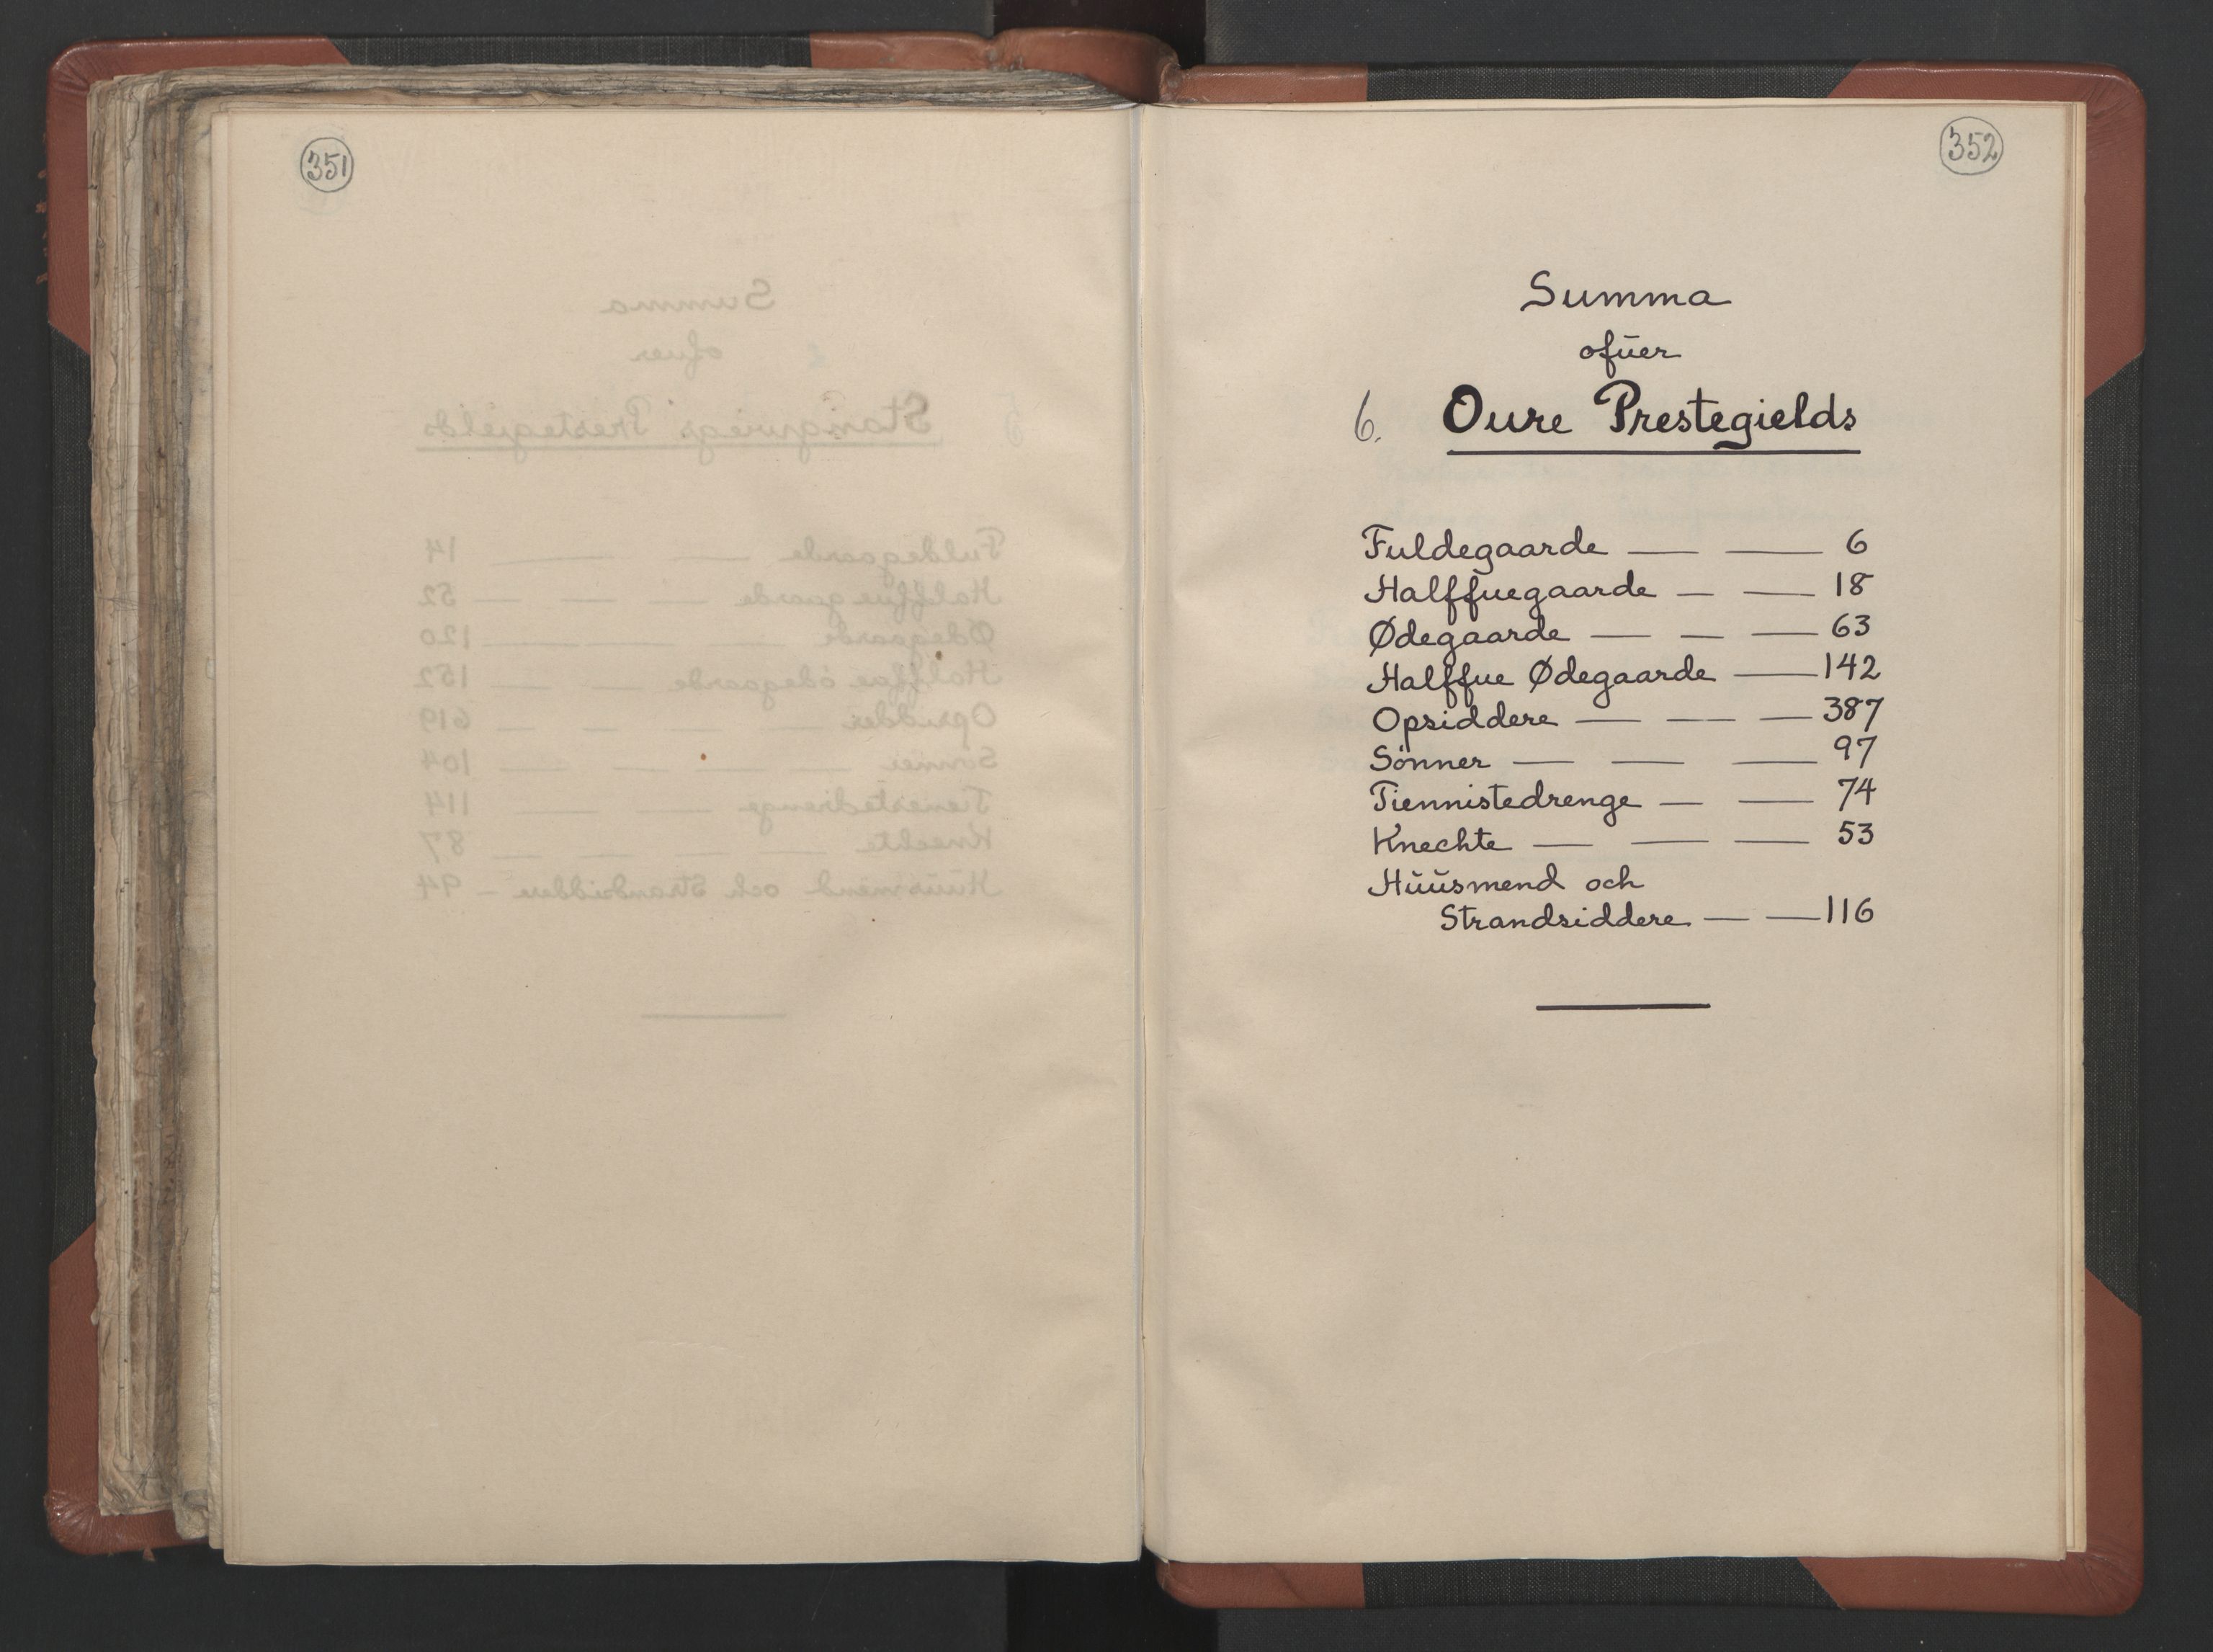 351
352
Summa
ofŭer
6. Oure Prestegields
Fuldegaarde — — 6
Halffuegaarde — — 18
Ødegaarde — — — 63
Halffue Ødegaarde — 142
Opsiddere — — — 387
Sönner — — — 97
Tiennistedrenge — — 74
Knechte — — — 53
Hŭŭsmend och
Strandsiddere — — 116